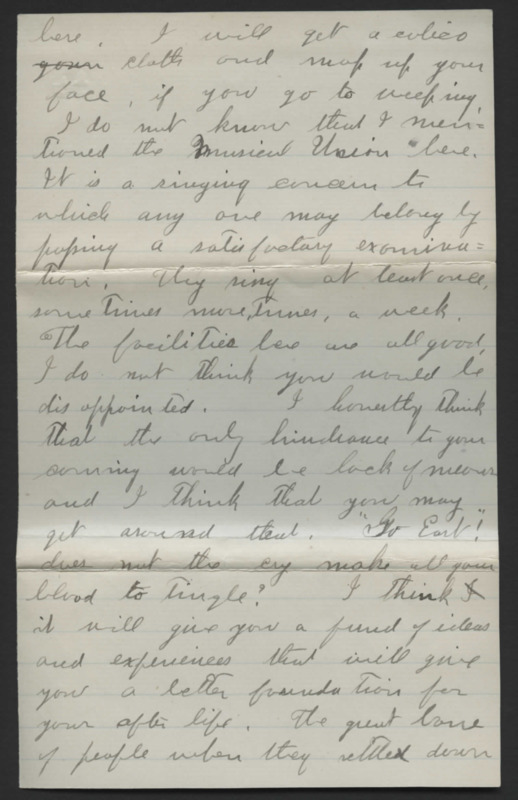 here. I will get a calico
gown cloth and mop up your
face, if you go to weeping.
I do not know that I men=
tioned the Musical Union here.
It is a singing concern to
which any one may belong by
passing a satisfactory examina=
tion. They sing at least once,
sometimes more, times, a week.
The facilities here are all good,
I do not think you would be
disappointed. I honestly think
that the only hindrance to your
coming would be lack of means
and I think that you may
get around that. "Go East"!
does not the cry make all your
blood to tingle? I think I
it will give you a fund of ideas
and experiences that will give
you a better foundation for
your after life. The great bane
of people when they settled down